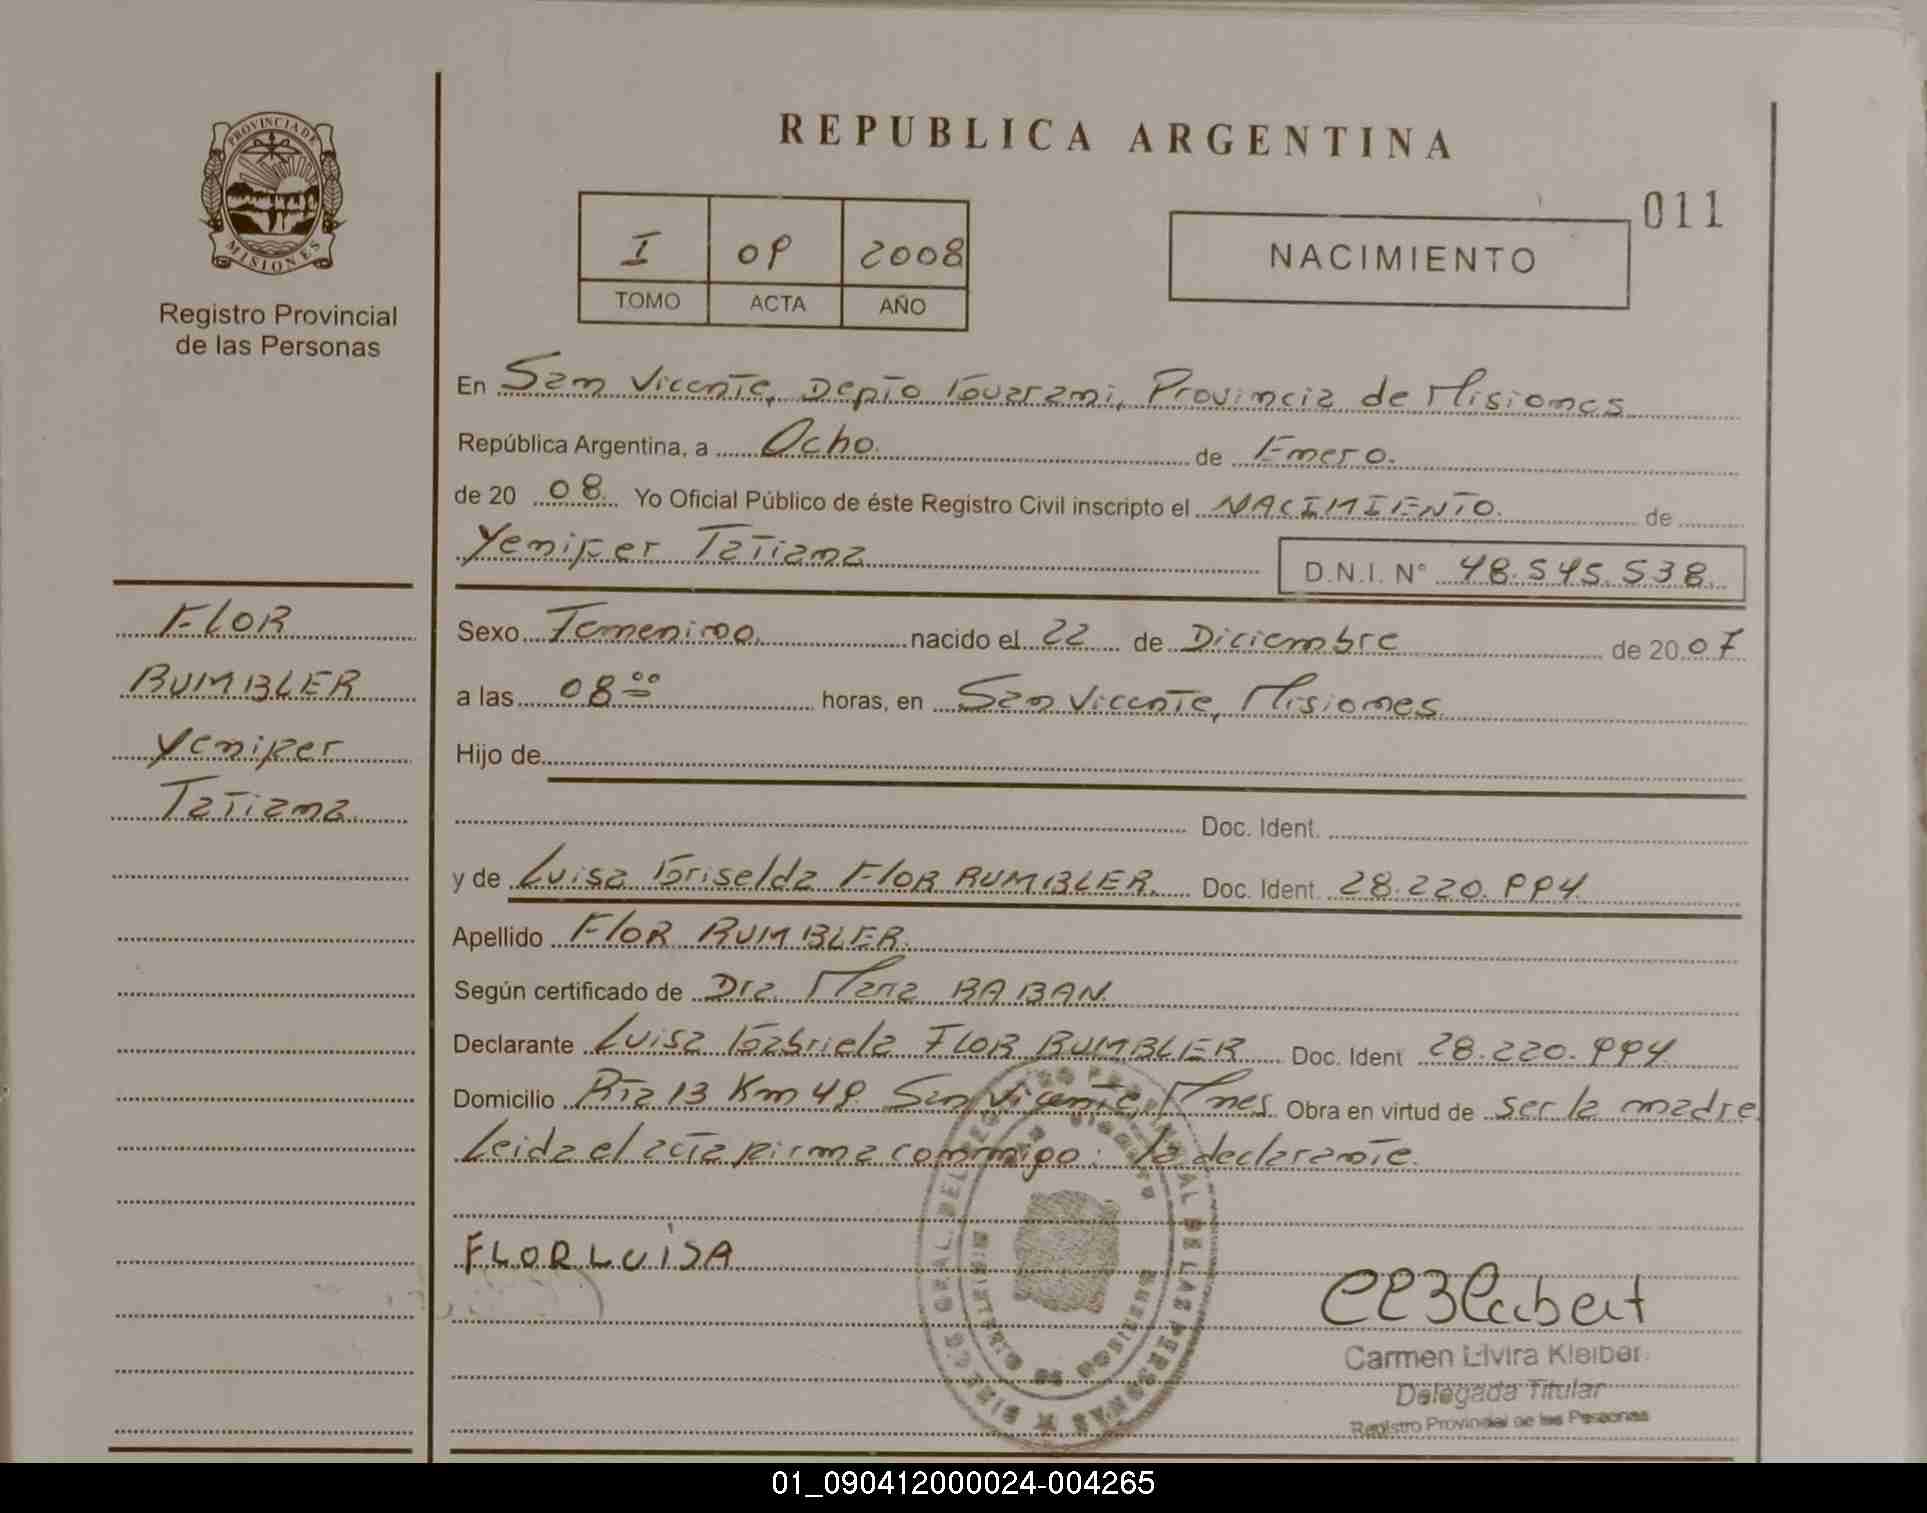 PROVINCIA DE
MISIONES
Registro Provincial
de las Personas
REPUBLICA ARGENTINA
011
I 09 2008
TOMO ACTA AÑO
NACIMIENTO
En San Vicente, Depto Guarani, Provincia de Misiones
República Argentina, a Ocho. de Enero.
de 20 08. Yo Oficial Público de éste Registro Civil inscripto el NACIMIENTO. de
Yenifer Tatiana
D.N.I. N° 48.545.538.
FLOR
RUMBLER
Yenifer
Tatiana
Sexo Femenino. nacido el 22 de Diciembre de 2007
a las 08 00 horas, en San Vicente, Misiones
Hijo de
Doc. Ident.
y de Luisa Griselda FLOR RUMBLER. Doc. Ident. 28.220.994
Apellido FLOR RUMBLER.
Según certificado de Dra. BABAN.
Declarante Luisa Gabriela FLOR RUMBLER Doc. Ident 28.220.994
Domicilio Rta 13 Km 49. San Vicente, Mnes. Obra en virtud de ser la madre
Leida el acta firma conmigo: la declarante.
FLOR LUISA
Carmen Elvira Kleiber.
Delegada Titular
Registro Provincial de las Personas
01_090412000024-004265